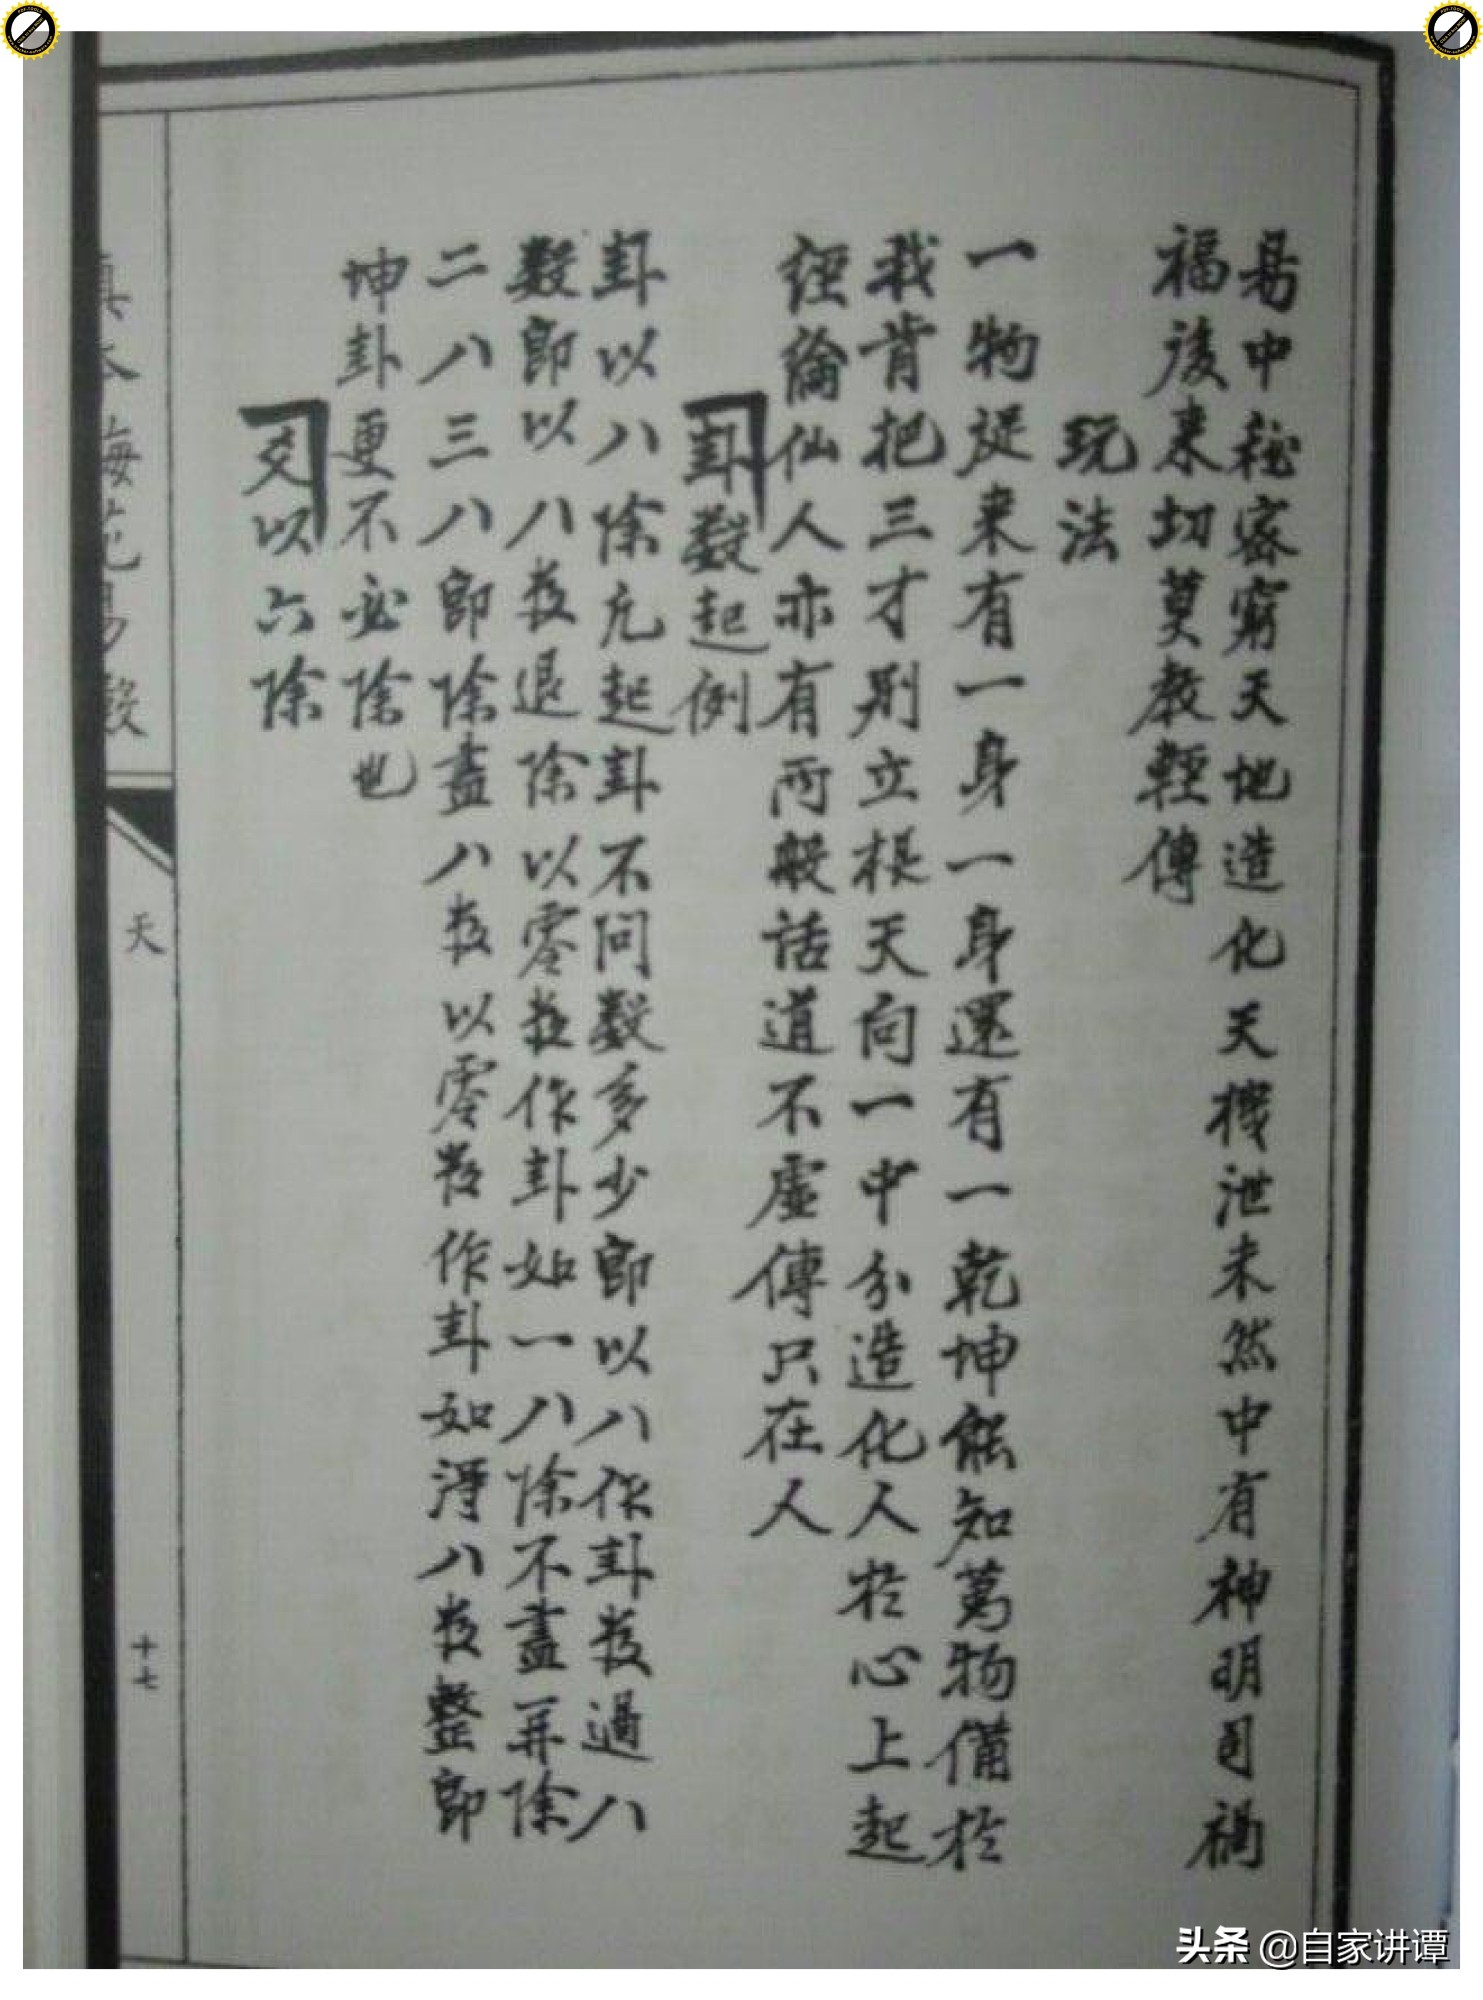 易中秘密窮天地造化天機泄未然中有神明司禍
福後来切莫教輕傳
玩法
一物従来有一身一身還有一乾坤能知萬物備於
我肯把三才别立根天向一中分造化人於心上起
經綸仙人亦有兩般話道不虛傳只在人
卦數起例
卦以八除凢起卦不問數多少即以八作卦数過八
數即以八数退除以零数作卦如一八除不盡再除
二八三八即除盡八数以零数作卦如得八数整即
坤卦更不必除也
爻以六除
天
十七
头条 @自家讲谭